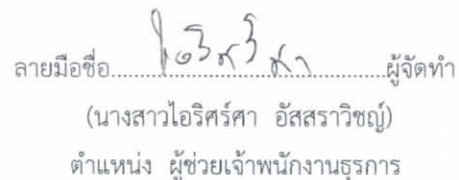 ลายมือชื่อ..........ไอริศร์ศา..........ผู้จัดทำ
(นางสาวไอริศร์ศา อัสสราวิชญ์)
ตำแหน่ง ผู้ช่วยเจ้าพนักงานธุรการ